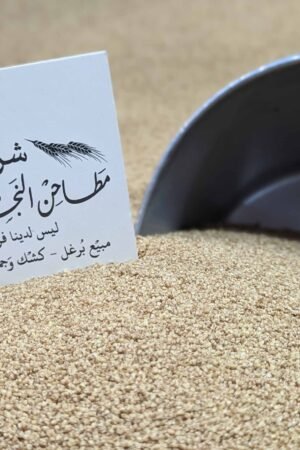 شر
مَطَاحِنْ النَّجـ
ليس لدينا فر
مبيْع بُرغل - كشك وَجمـ